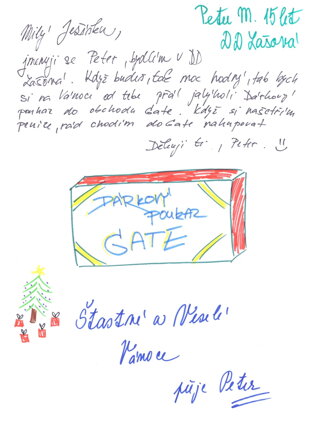 Petr M. 15 let
DD Lašová!
Milý Ježíšku,
jmenuji se Peter, bydlím v DD
Lašová!. Když budeš, tak moc hodný, tak bych
si na Vánoce od tebe přál jakýkoli Dárkový
poukaz do obchodu Gate. Když si našetřím
peníze, rád chodím do Gate nakupovat
Děkuji ti, Peter.
DÁRKOVÝ
POUKAZ
GATE
Šťastné a Veselé
Vánoce
přeje Peter